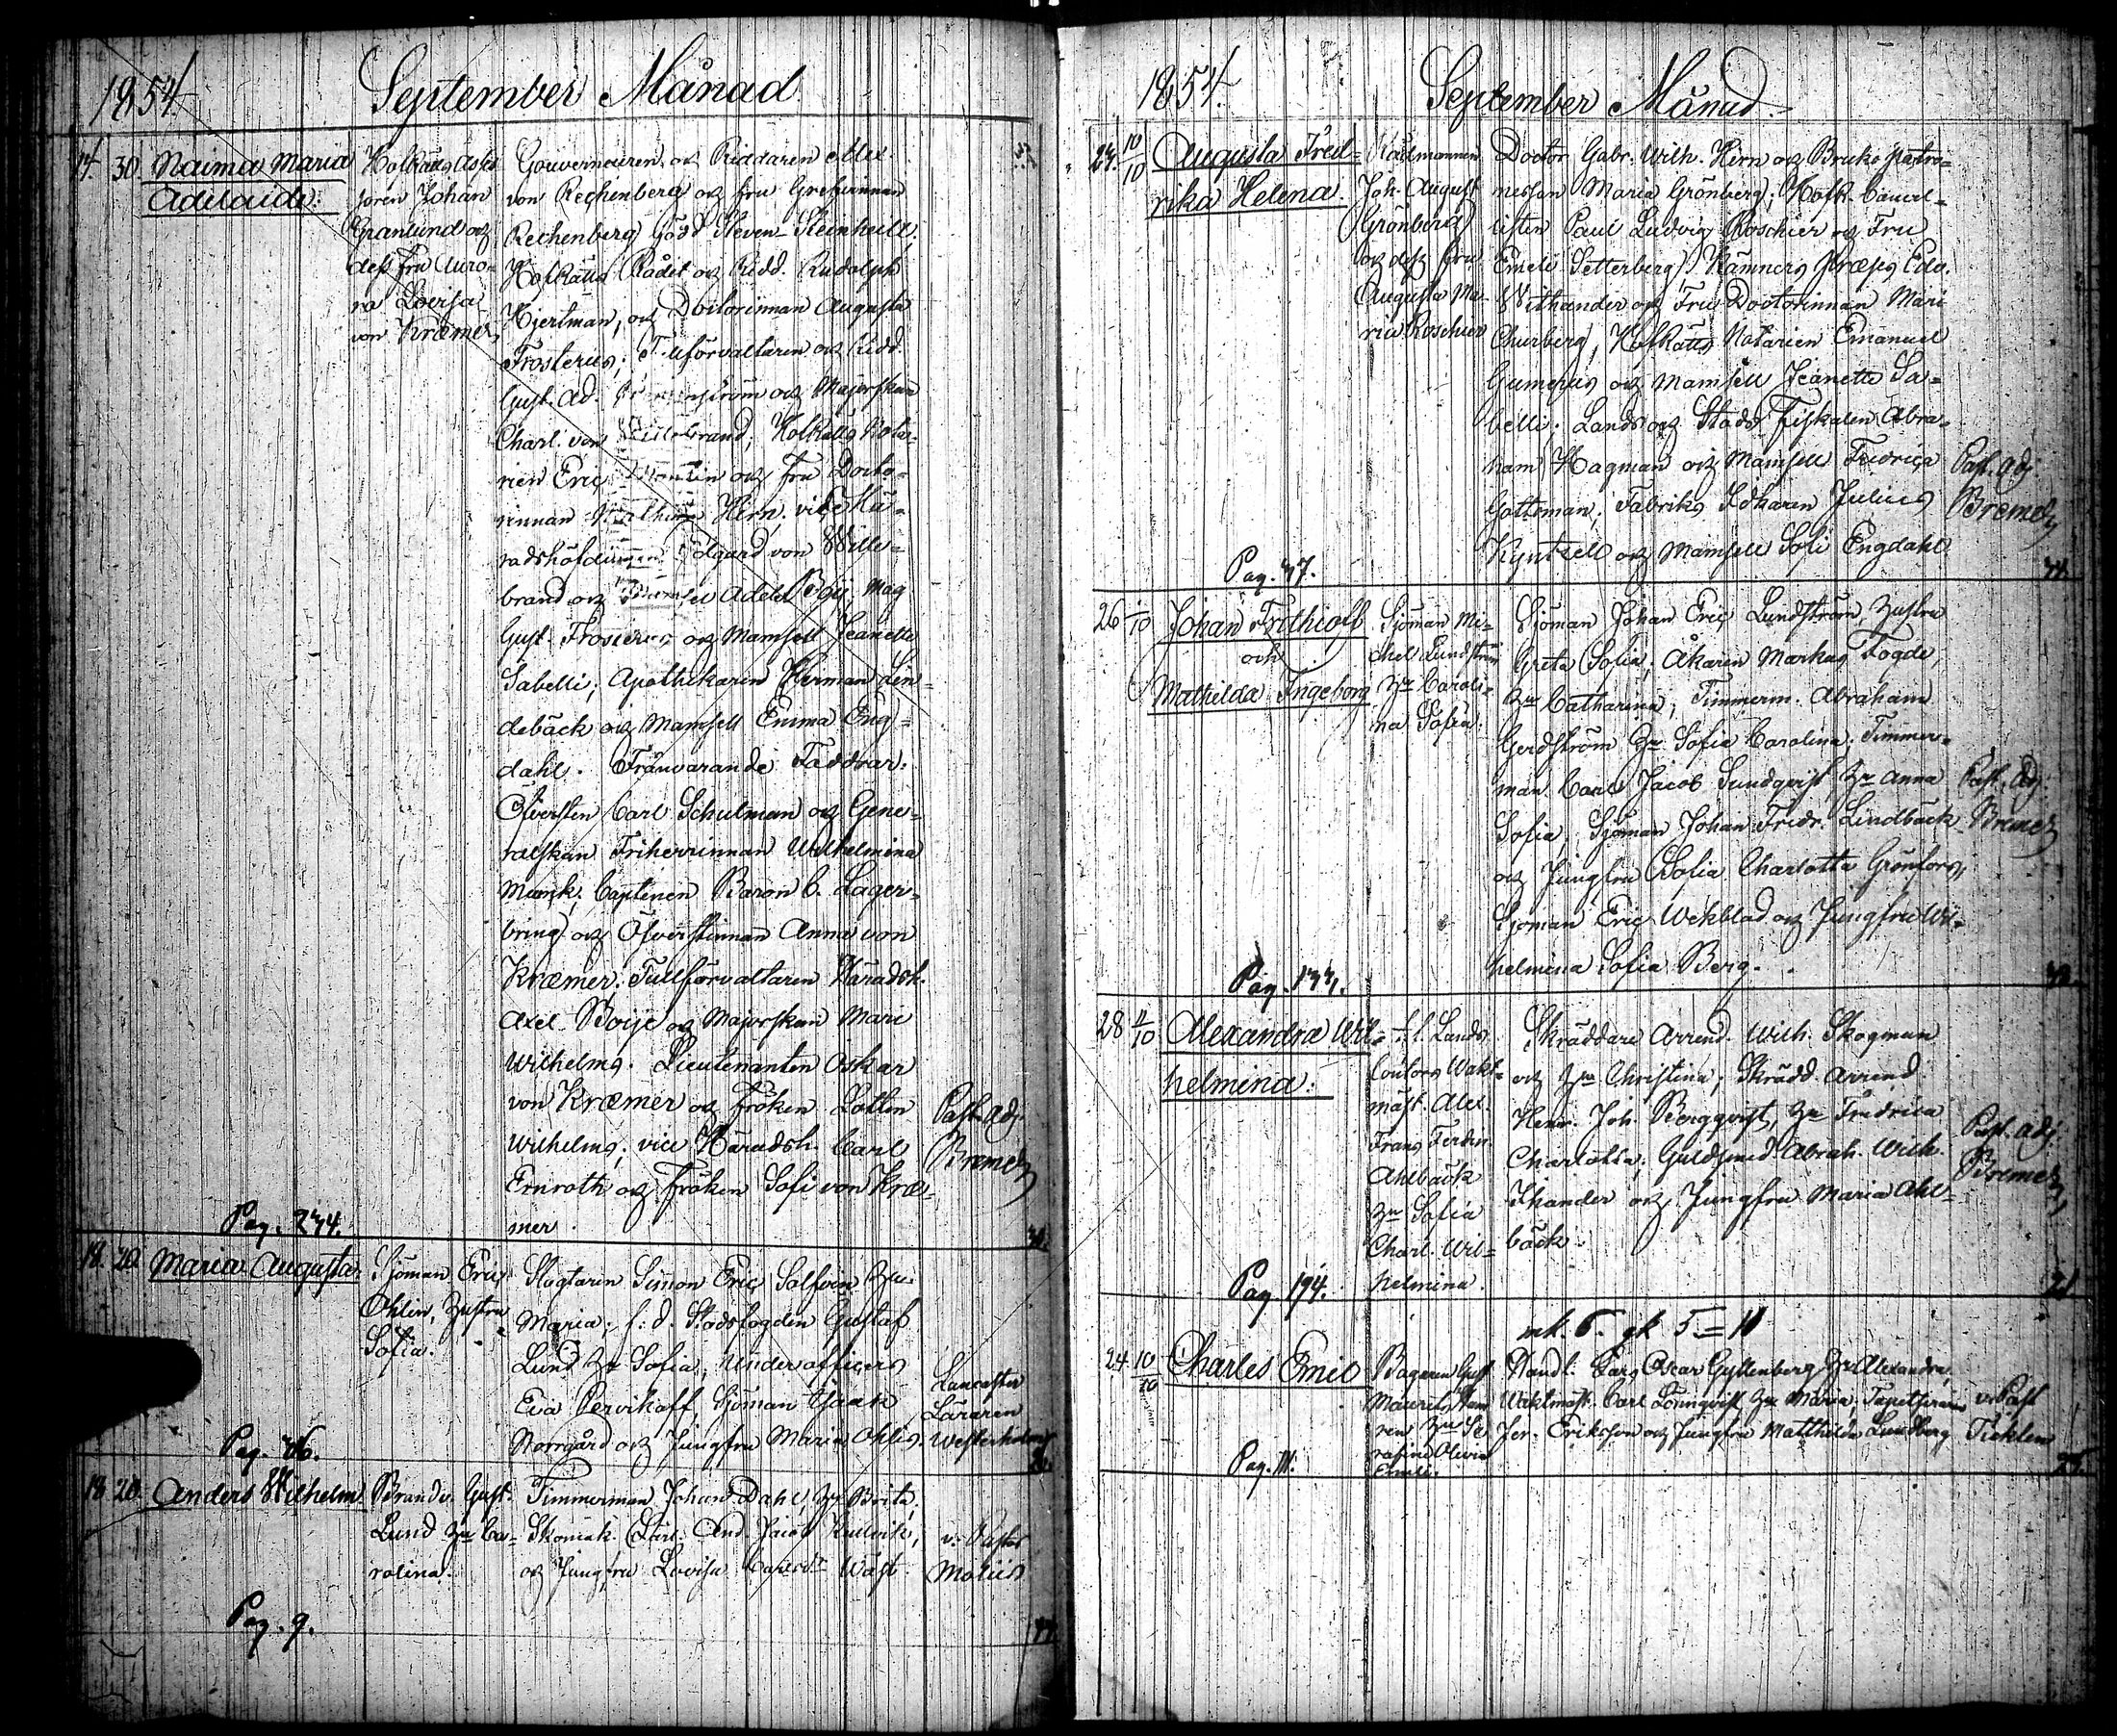 1854. September Månad.
14. 30. Naima Maria
Adelaide.
Hofrätts Asses
soren Johan
Granlund och
dess fru Auro-
ra Lovisa
von Kræmer
Gouverneuren och Riddaren Alex.
von Rechenberg och fru Grefvinnan
Rechenberg född Steven-Steinheill;
Hofrätts Rådet och Ridd. Rudolph
Hjertman, och Doctorinnan Augusta
Frosterus; Tullförvaltaren och Ridd.
Gust. Ad. och Majorskan
Charl. von Hofrätts Nota-
rien Eric och fru Docto-
rinnan Hirn, vice Hä-
radshöfdingen Edgard von Wille-
brand och Mamsell Adele Boij Mag
Gust. Frosterus och Mamsell Jeanette
Sabelli; Apothekaren Herman Lin-
debäck och Mamsell Emma Eng-
dahl. Frånvarande Faddrar:
Öfversten Carl Schulman och Gene-
ralskan Friherrinnan Wilhelmina
Munk; Captenen Baron C. Lager-
bring och Öfverstinnan Anna von
Kræmer. Tullförvaltaren Häradsh.
Axel Boije och Majorskan Mari
Wilhelms. Lieutenanten Oskar
von Kræmer och Fröken Lotten
Wilhelms; vice Häradsh. Carl
Enroth och Fröken Sofi von Kræ-
mer.
Past. adj.
Bremer
Pag. 234.
18. 20. Maria Augusta.
Sjöman Eric
Ohlin, Hustru
Sofia.
Slagtaren Simon Eric Salfvin Hu
Maria; f. d. Stadsfogden Gustaf
Lund Hu Sofia; Underofficers
Eva Pervikoff, Sjöman Isaak
Norrgård och Jungfru Maria Ohlis.
Lancaster
Läraren
Westerholm
Pag. 76.
18 20. Anders Wilhelm
Brandv. Gust.
Lund Hu Ca-
rolina.
Timmerman Johan Dahl, Hu Brita;
Skomak. Lärl. And. Jacob Kullvik,
och Jungfru Lovisa Wäst.
v. Pastor
Molin
Pag. 9.
1854. September Månad.
24. 10/10 Augusta Fred-
rika Helena.
Rådmannen
Joh. August
Grönberg
och dess fru
Augusta Ma-
ria Roschier
Doctor Gabr. Wilh. Hirn och Bruks patro-
nessan Maria Grönberg; Hofr. Cancel-
listen Paul Ludvig Roschier och Fru
Emeli Setterberg; Kämners Præses Edv.
Withander och Fru Doctorinnan Mari
Churberg, Hofrätts Notarien Emanuel
Gumerus och Mamsell Jeanette Sa-
belli; Lands och Stads Fiskalen Abra-
ham Hagman och Mamsell Fredrica
Gottsman; Fabriks Idkaren Julius
Kyntzell och Mamsell Sofi Engdahl
Past. adj.
Bremer
Pag. 47.
26 1/10 Johan Frithiolf
och
Mathilda Ingeborg
Sjöman Mi-
chel Lundström
Hu Caroli-
na Sofia.
Sjöman Johan Eric Lundström, Hustru
Greta Sofia; Åkaren Markus Fogde,
Hu Catharina; Timmerm. Abraham
Gerdström Hu Sofia Carolina; Timmer-
man Carl Jacob Sundqvist, Hu Anna
Sofia; Sjöman Johan Fredr. Lindbäck
och Jungfru Sofia Charlotta Grönfors;
Sjöman Eric Wekblad och Jungfru Wil-
helmina Sofia Berg.
Past. Adj.
Bremer
Pag. 133.
28 4/10 Alexandra Wil-
helmina.
f. Lands
Contors Wakt-
mäst. Alex.
Frans Ferdin.
Ahlbäck
Hu Sofia
Charl. Wil-
helmina.
Skräddare Arrend. Wilh. Skogman
och Hu Christina; Skrädd. Arrend.
Henr. Joh. Bergqvist, Hu Fredrica
Charlotta; Guldsmed Abrah. Wilh.
Ihander och Jungfru Maria Ahl-
bäck.
Past. adj.
Bremer
Pag. 194.
21
mk. 6. qk 5 = 11
24. 10/10 Charles Emil
Bagaren Gust
Hu Se
rafina Olivia
Emili.
Handl. Lars Oscar Gyllenberg, Hu Alexandra,
Waktmäst. Carl Lönnqvist Hu Maria; Tapetseraren
Jer. Eriksson och Jungfru Matthilda Lundberg
v. Past
Ticklen
Pag. 11.